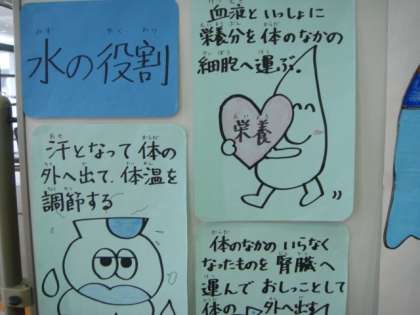 水の役割
血液といっしょに
栄養分を体のなかの
細胞へ運ぶ。
栄養
汗となって体の
外へ出て、体温を
調節する
体のなかのいらなく
なったものを腎臓へ
運んでおしっことして
体の外へ出す